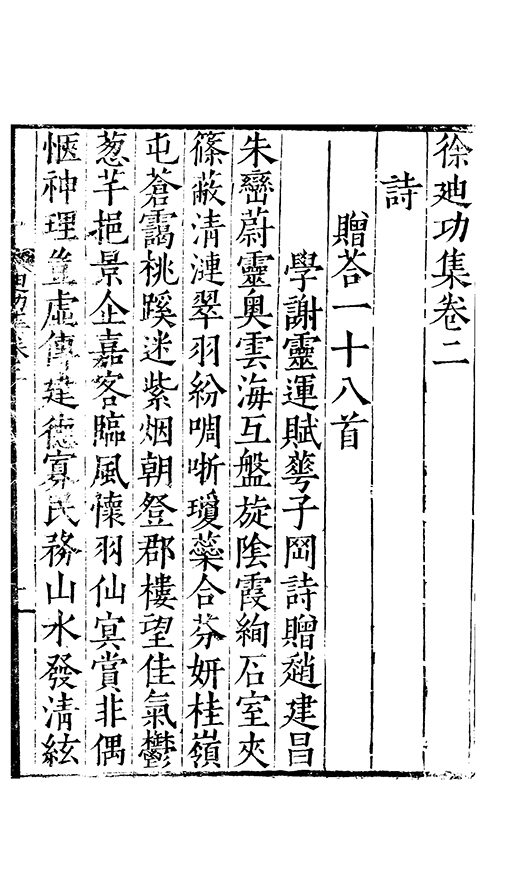 徐廸功集卷二
詩
贈荅一十八首
學謝靈運賦蕚子岡詩贈趙建昌
朱巒蔚靈奧雲海互盤旋陰霞絢石室夾
篠蔽清漣翠羽紛啁哳瓊蘂合芬妍桂嶺
屯蒼靄桃蹊迷紫烟朝登郡樓望佳氣鬱
葱芊挹景企嘉客臨風懷羽仙㝠賞非偶
愜神理豈虛傳建德寡民務山水發清絃